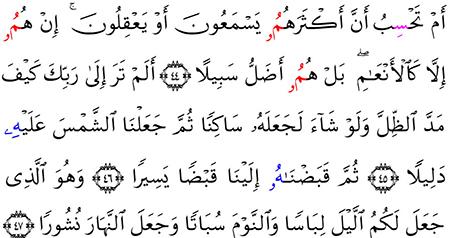 أَمْ تَحْسِبُ أَنَّ أَكْثَرَهُمُۥ يَسْمَعُونَ أَوْ يَعْقِلُونَ ۚ إِنْ هُمُۥ
إِلَّا كَٱلْأَنْعَـٰمِ ۖ بَلْ هُمُۥ أَضَلُّ سَبِيلًا ﴿٤٤﴾ أَلَمْ تَرَ إِلَىٰ رَبِّكَ كَيْفَ
مَدَّ ٱلظِّلَّ وَلَوْ شَآءَ لَجَعَلَهُۥ سَاكِنًا ثُمَّ جَعَلْنَا ٱلشَّمْسَ عَلَيْهِۦ
دَلِيلًا ﴿٤٥﴾ ثُمَّ قَبَضْنَـٰهُۥ إِلَيْنَا قَبْضًا يَسِيرًا ﴿٤٦﴾ وَهُوَ ٱلَّذِى
جَعَلَ لَكُمُ ٱلَّيْلَ لِبَاسًا وَٱلنَّوْمَ سُبَاتًا وَجَعَلَ ٱلنَّهَارَ نُشُورًا ﴿٤٧﴾